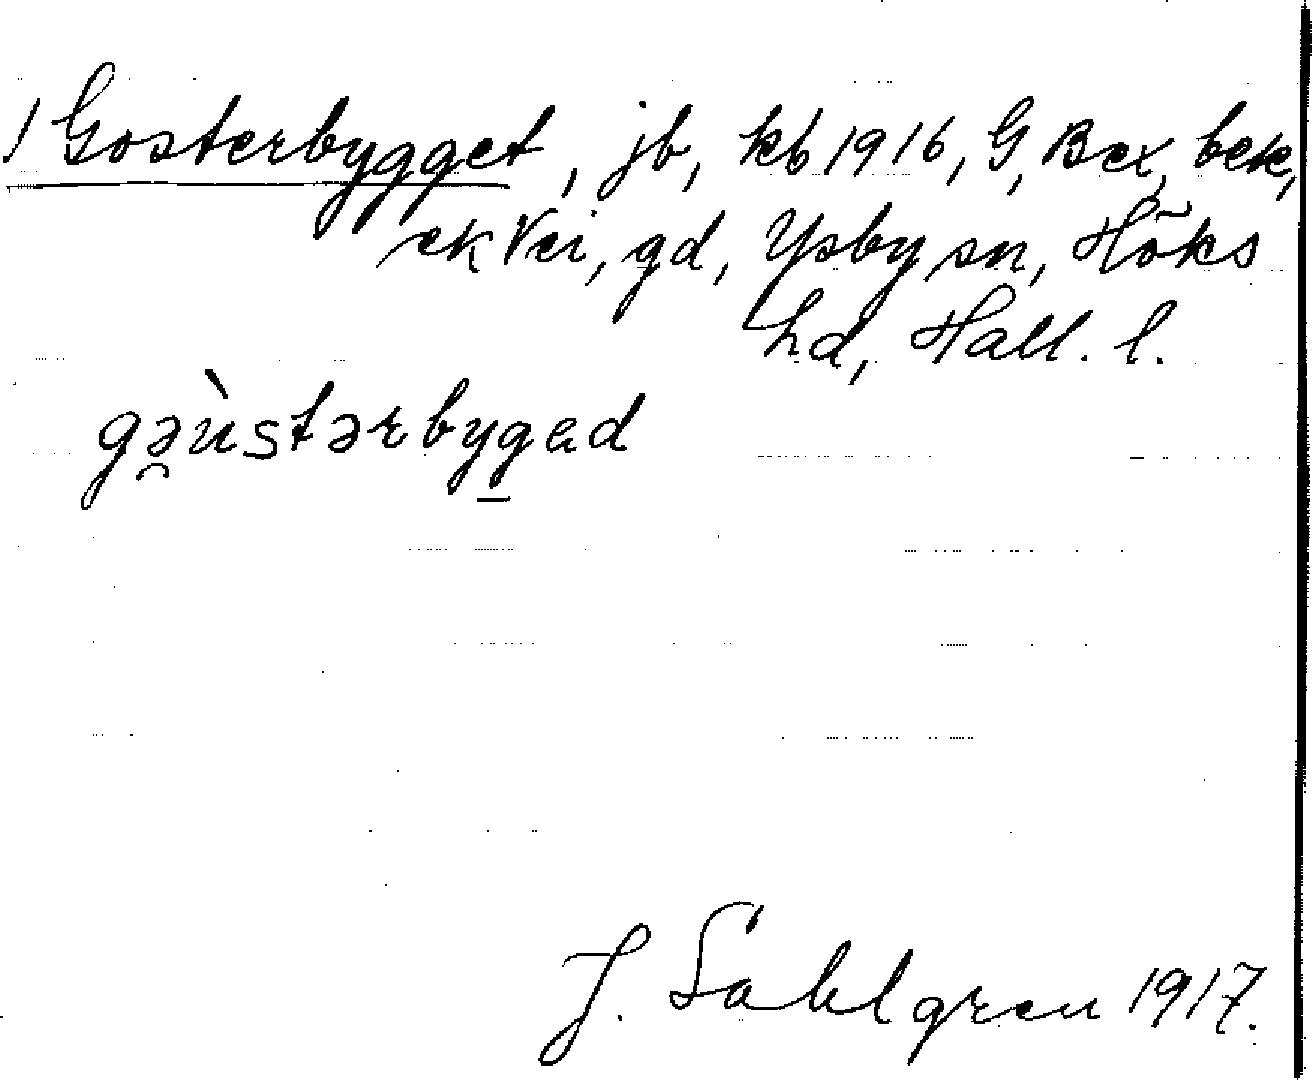 / Gosterbygget, jb, kb 1916, G, Bex, bek,
ek Vei, gd, Ysby sn, Höks
hd, Hall. l.
gə̯ùstərbyg̲ad
J. Sahlgren 1917.